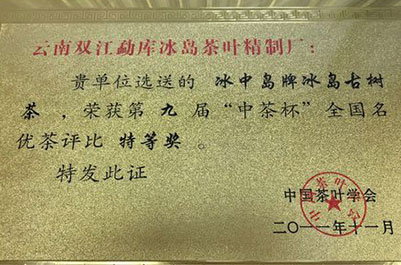 云南双江勐库冰岛茶叶精制厂:
贵单位选送的 冰中岛牌冰岛古树
茶,荣获第 九 届“中茶杯”全国名
优茶评比 特等奖 。
特发此证
中国茶叶学会
二〇一一年十一月